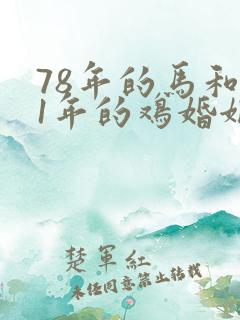 78年的馬和
1年的鸡婚姻
楚軍紅
未经同意禁止转载